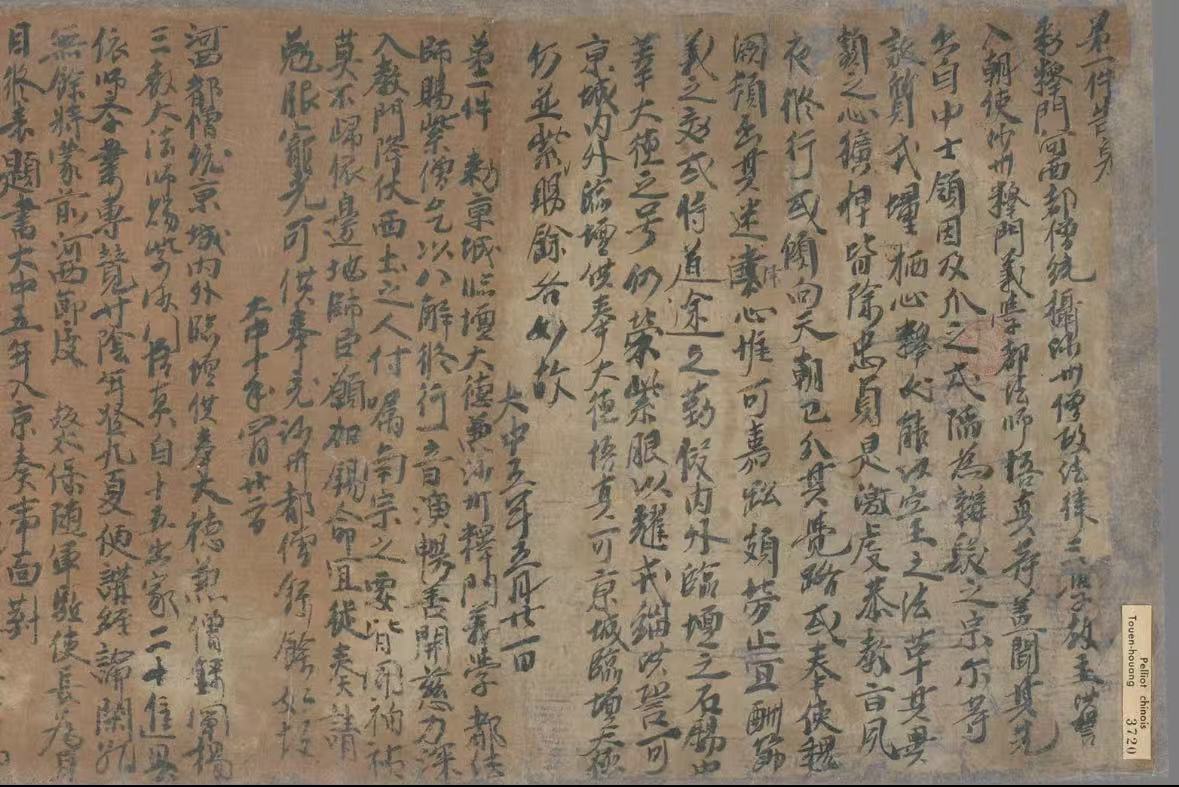 第一件告身
敕釋門河西都僧統攝沙州僧政法律三學教主洪䛒
入朝使沙州釋門義學都法師悟真等蓋聞其先
出自中土領因及瓜之戍陷為辮髮之宗爾等
誕質戎壃栖心釋氏能以空王之法革其異
類之心獷悍皆除忠貞是激虔恭教旨夙
夜修行或傾向天朝已分其覺路或奉使魏
闕頓出其迷津心惟可嘉跡頗勞止宜酬節
義之效或恃道途之勤假內外臨壇之石錫中
華大德之号仍榮紫服以耀戎緇洪䛒可
京城內外臨壇供奉大德悟真可京城臨壇大德
仍並紫賜餘各如故
大中五年五月廿一日
第二件 敕京城臨壇大德兼沙州釋門義學都法
師賜紫僧悟真以八解修行一音演暢善開慈力深
入教門降伏西土之人付囑南宗之要皆聞福祐
莫不歸依邊地帥臣願加錫命宜從奏請
勉服寵光可供奉充沙州都僧錄餘如故
大中十年四月廿二日
河西都僧統京城內外臨壇供奉大德兼僧錄闡揚
三教大法師賜紫沙門悟真自十五出家二十進具
依師學業專競寸陰年登九夏便講經論闡揚
無餘特蒙前河西節度 故太保隨軍驅使長為耳
目修表題書大中五年入京奏事面對
Pelliot chinois
Touen-houang 3720